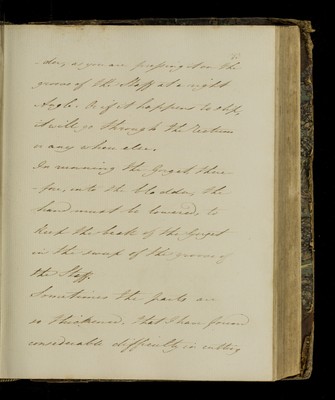 -der, as you are pressing it on the
groove of the Staff at a right
Angle. Or if it happens to slip,
it will go through the Rectum
or any where else.
In moving the Gorget there
-fore, into the bladder, the
hand must be lowered, to
keep the beak of the Gorget
in the sweep of the groove of
the Staff.
Sometimes the parts are
so thickened, that I have found
considerable difficulty in cutting